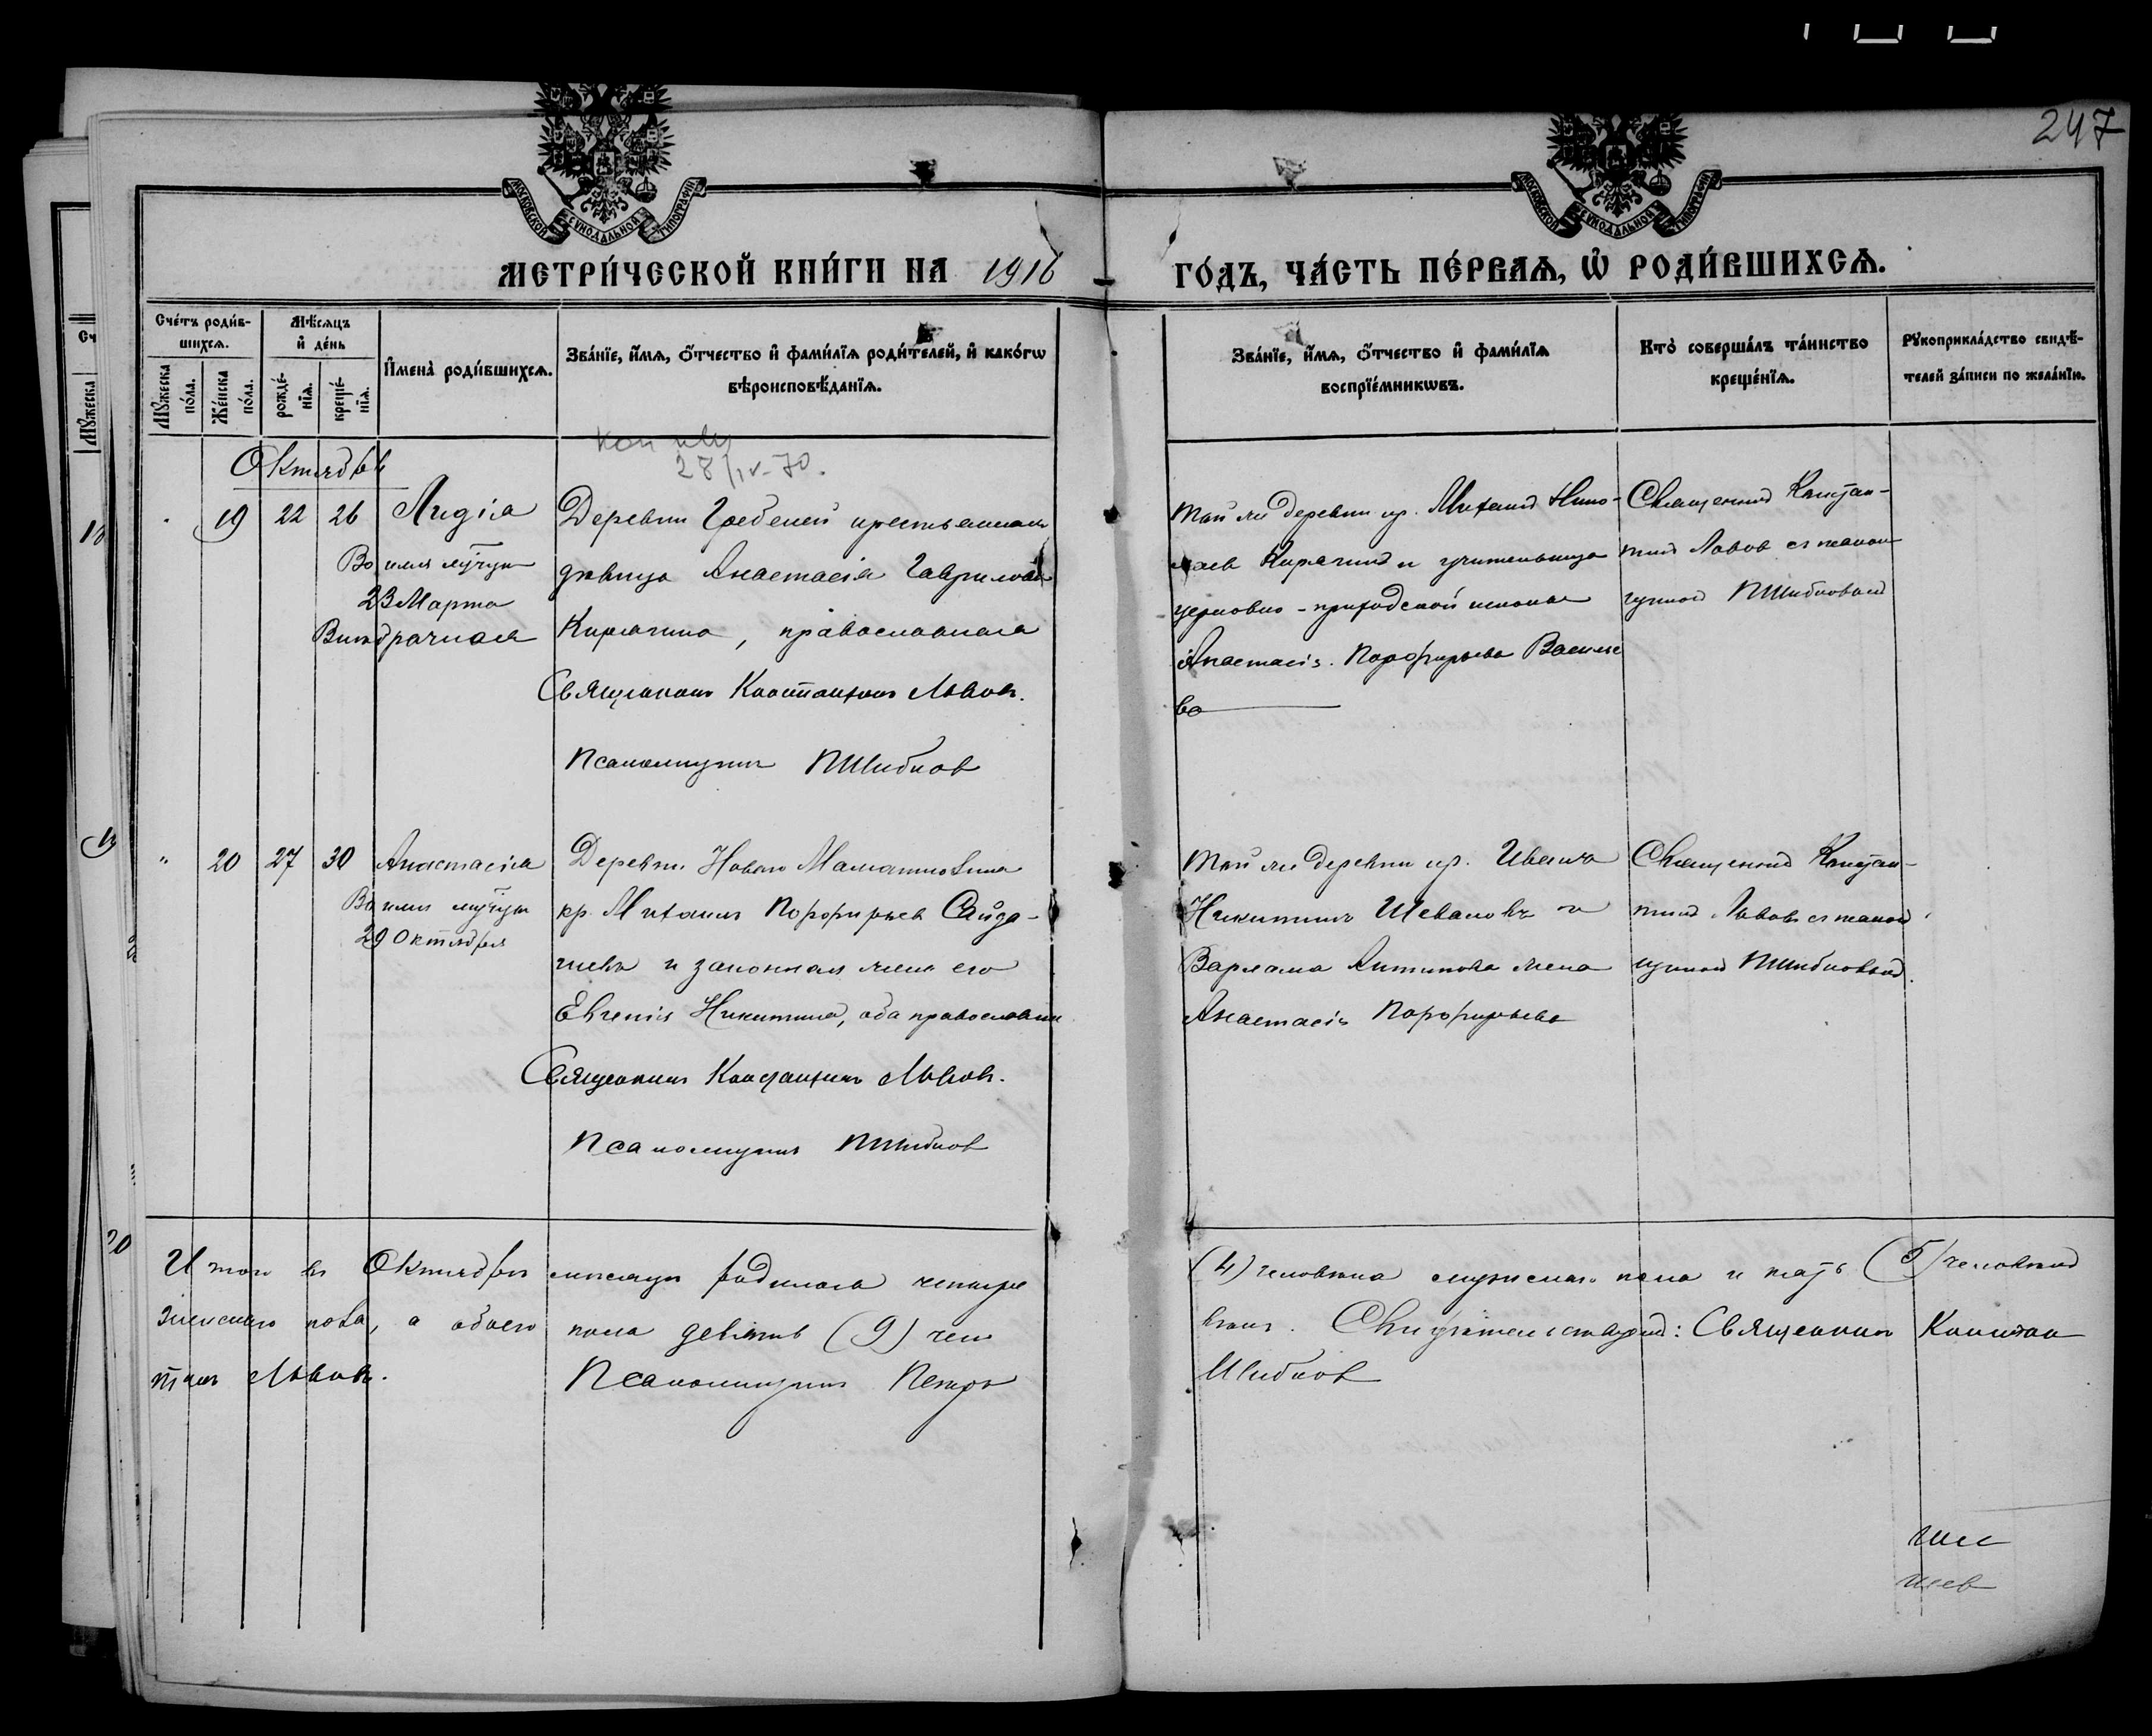 247
МОСКОВСКОЙ СУНОДАЛЬНОЙ ТИПОГРАФІИ
МОСКОВСКОЙ СУНОДАЛЬНОЙ ТИПОГРАФІИ
МЕТРИ́ЧЕСКОЙ КНИ́ГИ НА 1916
ГО́ДЪ, ЧА́СТЬ ПЕ́РВАѦ, Ѡ҆ РОДИ́ВШИХСѦ.
Сче́тъ роди́в-
шихсѧ.
Мѣ́сѧцъ
и҆ де́нь
Мꙋ́жеска по́ла.
Же́нска по́ла.
рожде́-
нїѧ.
креще́-
нїѧ.
И҆мена̀ роди́вшихсѧ.
Зва́нїе, и҆́мѧ, ѻ҆́тчество и҆ фами́лїѧ роди́телей, и҆ како́гѡ
вѣроисповѣ́данїѧ.
Зва́нїе, и҆́мѧ, ѻ҆́тчество и҆ фами́лїѧ
воспрїе́мникѡвъ.
Кто̀ соверша́лъ та́инство
креще́нїѧ.
Рꙋкоприкла́дство свидѣ́-
телей за́писи по жела́нїю.
28/IV-70.
Октябрь
19 22 26 Лидія
Во имя мучен
23 Марта
Внѣбрачная
Деревни Гребеней крестьянская
дѣвица Анастасія Гаврилова
Кирягина, православная
Священникъ Константинъ Львовъ.
Псаломщикъ ПШибков
Той же деревни кр. Михаил Нико-
лаев Кирягинъ и учительница
церковно-приходской школы
Анастасія Порфирьева Василье
ва
Священникъ Констан-
тинъ Львов съ псалом
щиком ПШибковым
" 20 27 30 Анастасія
Во имя мучен
29 Октября
Деревни Новаго
кр. Михаилъ Порфирьев Сайда-
шевъ и законная жена его
Евгенія Никитина, оба православны
Священникъ Константинъ Львовъ.
Псаломщикъ ПШибков
Той же деревни кр. Иванъ
Никитинъ Шеваловъ и
Варлама Антипова жена
Анастасія Порфирьева
Священникъ Констан-
тинъ Львовъ съ псалом
щиком ПШибковым.
Итого въ Октябрѣ мѣсяцѣ родилось четыре
(4) человѣка мужескаго пола и пять (5) человѣкъ
женскаго пола, а обоего пола девять (9) чело
вѣкъ. Свидѣтельствуютъ: Священникъ Констан
тинъ Львовъ.
Псаломщикъ Петръ
Шибков